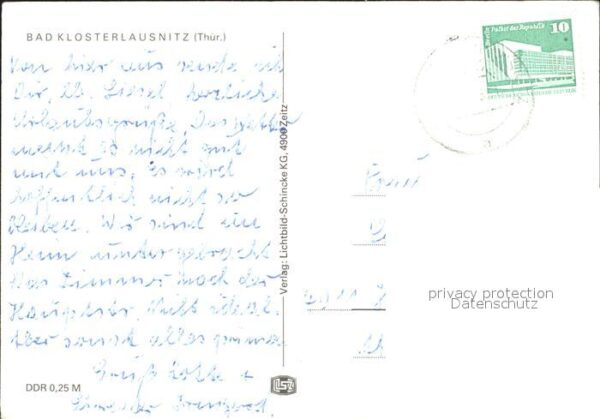 BAD KLOSTERLAUSNITZ (Thür.)
Von hier aus sende ich
Dir, lb. Liesel, herzliche
Urlaubsgrüße. Das Wetter
meint es nicht gut
mit uns. Es wird
hoffentlich nicht so
bleiben. Wir sind im
Heim untergebracht
Das Zimmer nach der
Hauptstr. nicht ideal.
Aber sonst alles prima
Gruß
DDR 0,25 M
Verlag: Lichtbild-Schincke KG, 4900 Zeitz
Palast der Republik
10
Frau
privacy protection
Datenschutz